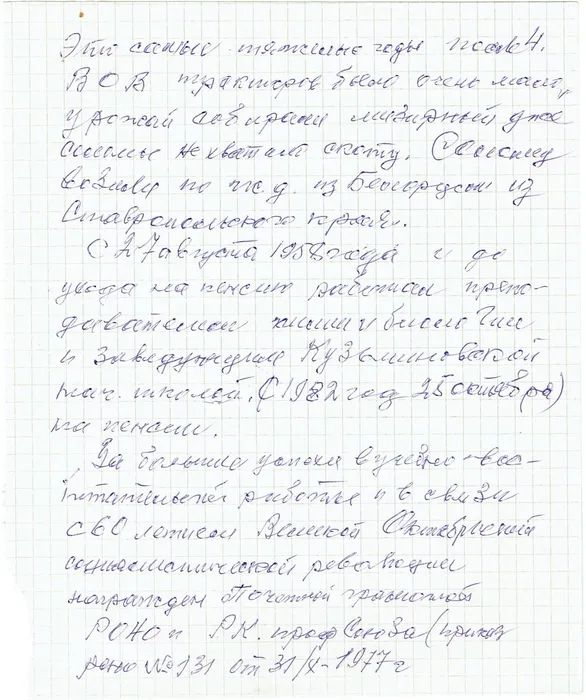 Это самые тяжелые годы после 4.
ВОВ тракторов было очень мало,
урожай собирали мизирный даже
соломы не хватало скоту. (Солому
возили по ж.д. из Белгорода и из
Ставропольского края.
С 27 августа 1958 года и до
ухода на пенсию работал препо-
давателем химии и биологии
и заведующим Кузьминовской
нач. школой. (С 1982 год 25 октября)
на пенсии.
За большие успехи в учебно-вос-
питательной работе и в связи
с 60 летием Великой Октябрьской
социалистической революции
награжден Почетной грамотой
РОНО и РК. профсоюза (приказ
роно № 131 от 31/X-1977 г